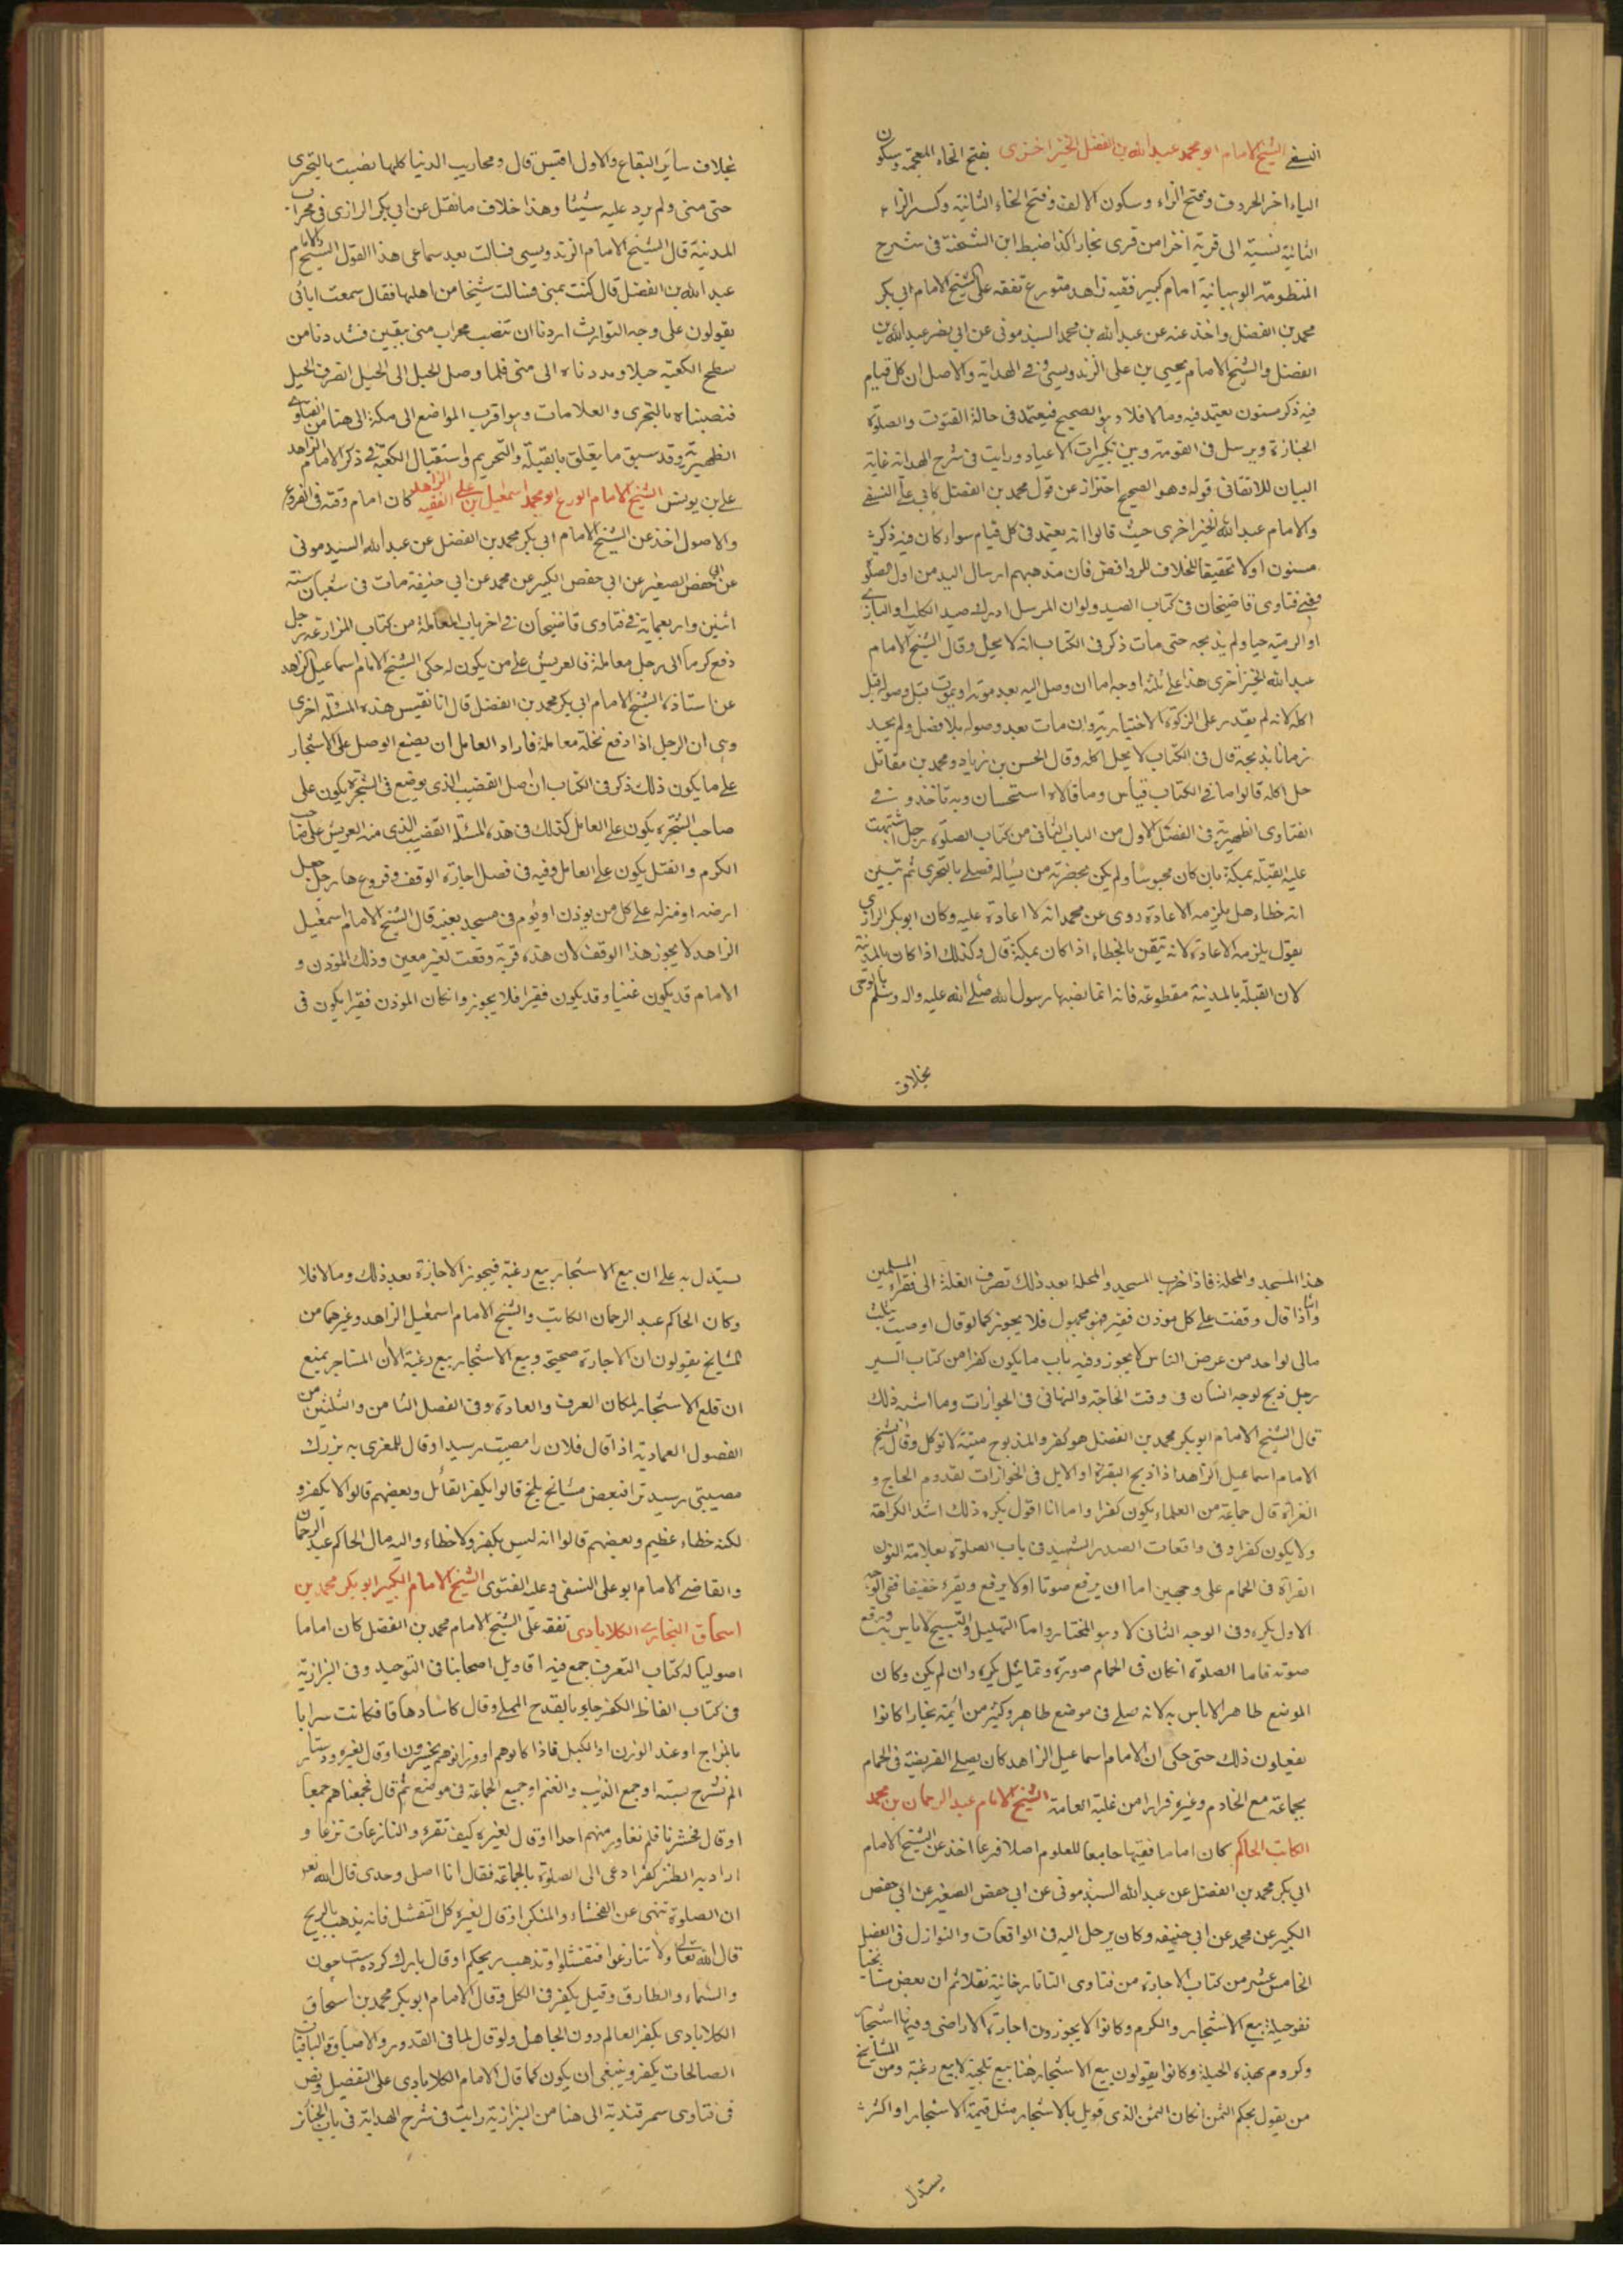 النسفي الشيخ الامام ابو محمد عبد الله بن الفضل الخيزاخزى بفتح الخاء المعجمة وسكون
الياء اخر الحروف وفتح الزاء وسكون الالف وفتح الخاء الثانية وكسر الزاء
الثانية نسبة الى قرية اخزا من قرى بخارا كذا ضبط ابن الشحنة فى شرح
المنظومة الوهبانية امام كبير فقيه زاهد متورع تفقه على الشيخ الامام ابي بكر
محمد بن الفضل واخذ عنه عن عبد الله بن محمد السبذمونى عن ابي حفر عبد الله بن
الفضل والشيخ الامام يحيى بن على الزندويسى وفى الهداية والاصل ان كل قيام
فيه ذكر مسنون يعتمد فيه وما لا فلا وهو الصحيح فيعتمد فى حالة القنوت والصلوة
الجنازة ويرسل فى القومة وبين تكبيرات الاعياد ورايت فى شرح الهداية غاية
البيان للاتقانى قوله وهو الصحيح احتراز عن قول محمد بن الفضل كابي على النسفي
والامام عبد الله الخيزاخزى حيث قالوا انه يعتمد فى كل قيام سواء كان فيه ذكر
مسنون اولا تحقيقا للخلاف للروافض فان مذهبهم ارسال اليد من اول الصلو
وفي فتاوى قاضيخان فى كتاب الصيد ولو ان المرسل ادرك صيد الكلب او البازي
او الرمية حيا ولم يذبحه حتى مات ذكر فى الكتاب انه لا يحل وقال الشيخ الامام
عبد الله الخيزاخزى هذا على ثلثة اوجه اما ان وصل اليه بعد موته او يموت قبل وصوله قبل
اكله لانه لم يقدر على الزكوة الاختيارية وان مات بعد وصوله بلا فصل ولم يجد
زمانا يذبحه قال فى الكتاب لا يحل اكله وقال الحسن بن زياد ومحمد بن مقاتل
حل اكله قالوا ما فى الكتاب قياس وما قالاه استحسان وبه ناخذ و في
الفتاوى الظهيرية فى الفصل الاول من الباب الثانى من كتاب الصلوة رجل اشتبهت
عليه القبلة بمكة بان كان محبوسا ولم يكن بحضرته من يساله فصلى بالتحرى ثم تبين
انه خطاء هل يلزمه الاعادة روى عن محمد انه لا اعادة عليه وكان ابو بكر الرازي
يقول يلزمه الاعادة لانه تيقن بالخطاء اذا كان بمكة قال وكذلك اذا كان بالمدينة
لان القبلة بالمدينة مقطوعة فانه انما نصبها رسول الله صلى الله عليه واله وسلم بالوحى
بخلاف
بخلاف سائر البقاع والاول اقيس قال ومحاريب الدنيا كلها نصبت بالتحرى
حتى منى ولم يرد عليه شيئا وهذا خلاف ما نقل عن ابي بكر الرازى فى محراب
المدينة قال الشيخ الامام الزندويسى فسالت بعد سماعى هذا القول الشيخ الامام
عبد الله بن الفضل قال كنت بمنى فسالت شيخا من اهلها فقال سمعت ابائى
يقولون على وجه التوارث اردنا ان ننصب محراب منى بيقين فشددنا من
سطح الكعبة حبلا ومددناه الى منى فلما وصل الحبل الى الجبل انصرف الحبل
فنصبناه بالتحرى والعلامات وهو اقرب المواضع الى مكة الى هنا من الفتاوى
الظهيرية وقد سبق ما يتعلق بالقبلة والتحريم واستقبال الكعبة فى ذكر الامام الزاهد
على بن يونس الشيخ الامام الورع ابو محمد اسمعيل بن على الفقيه الزاهد كان امام وقته فى الفروع
والاصول اخذ عن الشيخ الامام ابي بكر محمد بن الفضل عن عبد الله السبذمونى
عن ابي حفص الصغير عن ابي حفص الكبير عن محمد عن ابي حنيفة مات فى شعبان سنة
اثنين واربعماية فى فتاوى قاضيخان فى اخر باب المعاملة من كتاب المزارعة رجل
دفع كرما الى رجل معاملة فالعريش على من يكون له حكى الشيخ الامام اسماعيل الزاهد
عن استاذه الشيخ الامام ابي بكر محمد بن الفضل قال انا نقيس هذه المسئلة اخرى
وهى ان الرجل اذا دفع نخلة معاملة فاراد العامل ان يضع الوصل على الاشجار
على ما يكون ذلك ذكر فى الكتاب ان اصل القضيب الذى يوضع فى الشجرة يكون على
صاحب الشجرة يكون على العامل كذلك فى هذه المسئلة القضيب الذى منه العريش على صاحب
الكرم والفتل يكون على العامل وفيه فى فصل اجارة الوقف وفروعها رجل جعل
ارضه او منزله على كل من يوذن او يؤم فى مسجد بعينه قال الشيخ الامام اسمعيل
الزاهد لا يجوز هذا الوقف لان هذه قربة وقعت لغير معين وذلك الموذن و
الامام قد يكون غنيا وقد يكون فقيرا فلا يجوز وان كان الموذن فقيرا يكون فى
هذا المسجد والمحلة فاذا خرب المسجد والمحلة بعد ذلك تصرف الغلة الى فقراء المسلمين
واما اذا قال وقفت على كل موذن فقير فهو مجهول فلا يجوز كما لو قال اوصيت بثلث
مالى لواحد من عرض الناس لا يجوز وفيه باب ما يكون كفرا من كتاب السير
رجل ذبح لوجه انسان فى وقت الخاجة والتهانى فى الجوازات وما اشبه ذلك
قال الشيخ الامام ابو بكر محمد بن الفضل هو كفر والمذبوح ميتة لا توكل وقال الشيخ
الامام اسماعيل الزاهد اذا ذبح البقرة او الابل فى الجوازات لقدوم الحاج و
الغزاة قال جماعة من العلماء يكون كفرا واما انا اقول يكره ذلك اشد الكراهة
ولا يكون كفرا وفى واقعات الصدر الشهيد فى باب الصلوة بعلامة النون
القراة فى الحمام على وجهين اما ان يرفع صوتا اولا يرفع ويقرء خفيفا ففى الوجه
الاول يكره وفى الوجه الثانى لا وهو المختار واما التهليل والتسبيح لا باس به ورفع
صوته فاما الصلوة ان كان فى الحمام صورة وتماثيل يكره وان لم يكن وكان
الموضع طاهرا لا باس به لانه صلى فى موضع طاهر وكثير من ائمة بخارا كانوا
يفعلون ذلك حتى حكى ان الامام اسماعيل الزاهد كان يصلى الفريضة فى الحمام
بجماعة مع الخادم وغيره فرارا من غلبة العامة الشيخ الامام عبد الرحمان بن محمد
الكاتب الحاكم كان اماما فقيها جامعا للعلوم اصلا فرعا اخذ عن الشيخ الامام
ابي بكر محمد بن الفضل عن عبد الله السبذمونى عن ابي حفص الصغير عن ابي حفص
الكبير عن محمد عن ابي حنيفه وكان يرحل اليه فى الواقعات والنوازل فى الفصل
الخامس عشر من كتاب الاجارة من فتاوى التاتارخانية نقلا ثم ان بعض مشايخنا
نفو حيلة بيع الاشجار والكرم وكانوا لا يجوزون اجارة الاراضى وفيها اشجار
وكروم بهذه الحيلة وكانوا يقولون بيع الاشجار هنا بيع تلجية لا بيع رغبة ومن المشايخ
من يقول بحكم الثمن ان كان الثمن الذى قوبل بالاشجار مثل قيمة الاشجار او اكثر
يستدل
يستدل به على ان بيع الاشجار بيع رغبة فيجوز الاجارة بعد ذلك وما لا فلا
وكان الحاكم عبد الرحمان الكاتب والشيخ الامام اسمعيل الزاهد وغيرهما من
المشايخ يقولون ان الاجارة صحيحة وبيع الاشجار بيع رغبة الا ان المستاجر يمنع
ان قلع الاشجار لمكان العرف والعادة وفى الفصل الثامن والثلثين من
الفصول العمادية اذا قال فلان را مصيبت رسيد او قال للمعزى به بزرك
مصيبتى رسيد ترا فبعض مشايخ بلخ قالوا يكفر القائل وبعضهم قالوا لا يكفر و
لكنه خطاء عظيم وبعضهم قالوا انه ليس بكفر ولا خطاء واليه مال الحاكم عبد الرحمان
والقاضى الامام ابو على النسفى وعليه الفتوى الشيخ الامام الكبير ابو بكر محمد بن
اسحاق البخارى الكلابادى تفقه على الشيخ الامام محمد بن الفضل كان اماما
اصوليا له كتاب التعرف جمع فيه اقاويل اصحابنا فى التوحيد وفى البزازية
فى كتاب الفاظ الكفر جاء بالقدح المملى وقال كاسا دهاقا فكانت سرابا
بالمزاج او عند الوزن او الكيل فاذا كالوهم او وزنوهم يخسرون او قال لغيره دستار
الم نشرح بسته او جمع الذيب والغنم او جميع الجماعة فى موضع ثم قال فجمعناهم جمعا
او قال فحشرنا فلم نغادر منهم احدا او قال لغيره كيف تقرء والنازعات نزعا و
اراد به الطنز كفر ادعى الى الصلوة بالجماعة فقال انا اصلى وحدى قال الله تع
ان الصلوة تنهى عن الفحشاء والمنكر او قال لغيره كل التفشل فانه يذهب بالريح
قال الله تعالى ولا تنازعوا فتفشلوا وتذهب ريحكم او قال پارك كرده ست چون
والسماء والطارق وقيل يكفر فى الكل وقال الامام ابو بكر محمد بن اسحاق
الكلابادى يكفر العالم دون الجاهل ولو قال لما فى القدور والاضياق والباقيات
الصالحات يكفر وينبغى ان يكون كما قال الامام الكلابادى على التفصيل ونص
فى فتاوى سمرقندية الى هنا من البزازية رايت فى شرح الهداية فى باب الجنائز